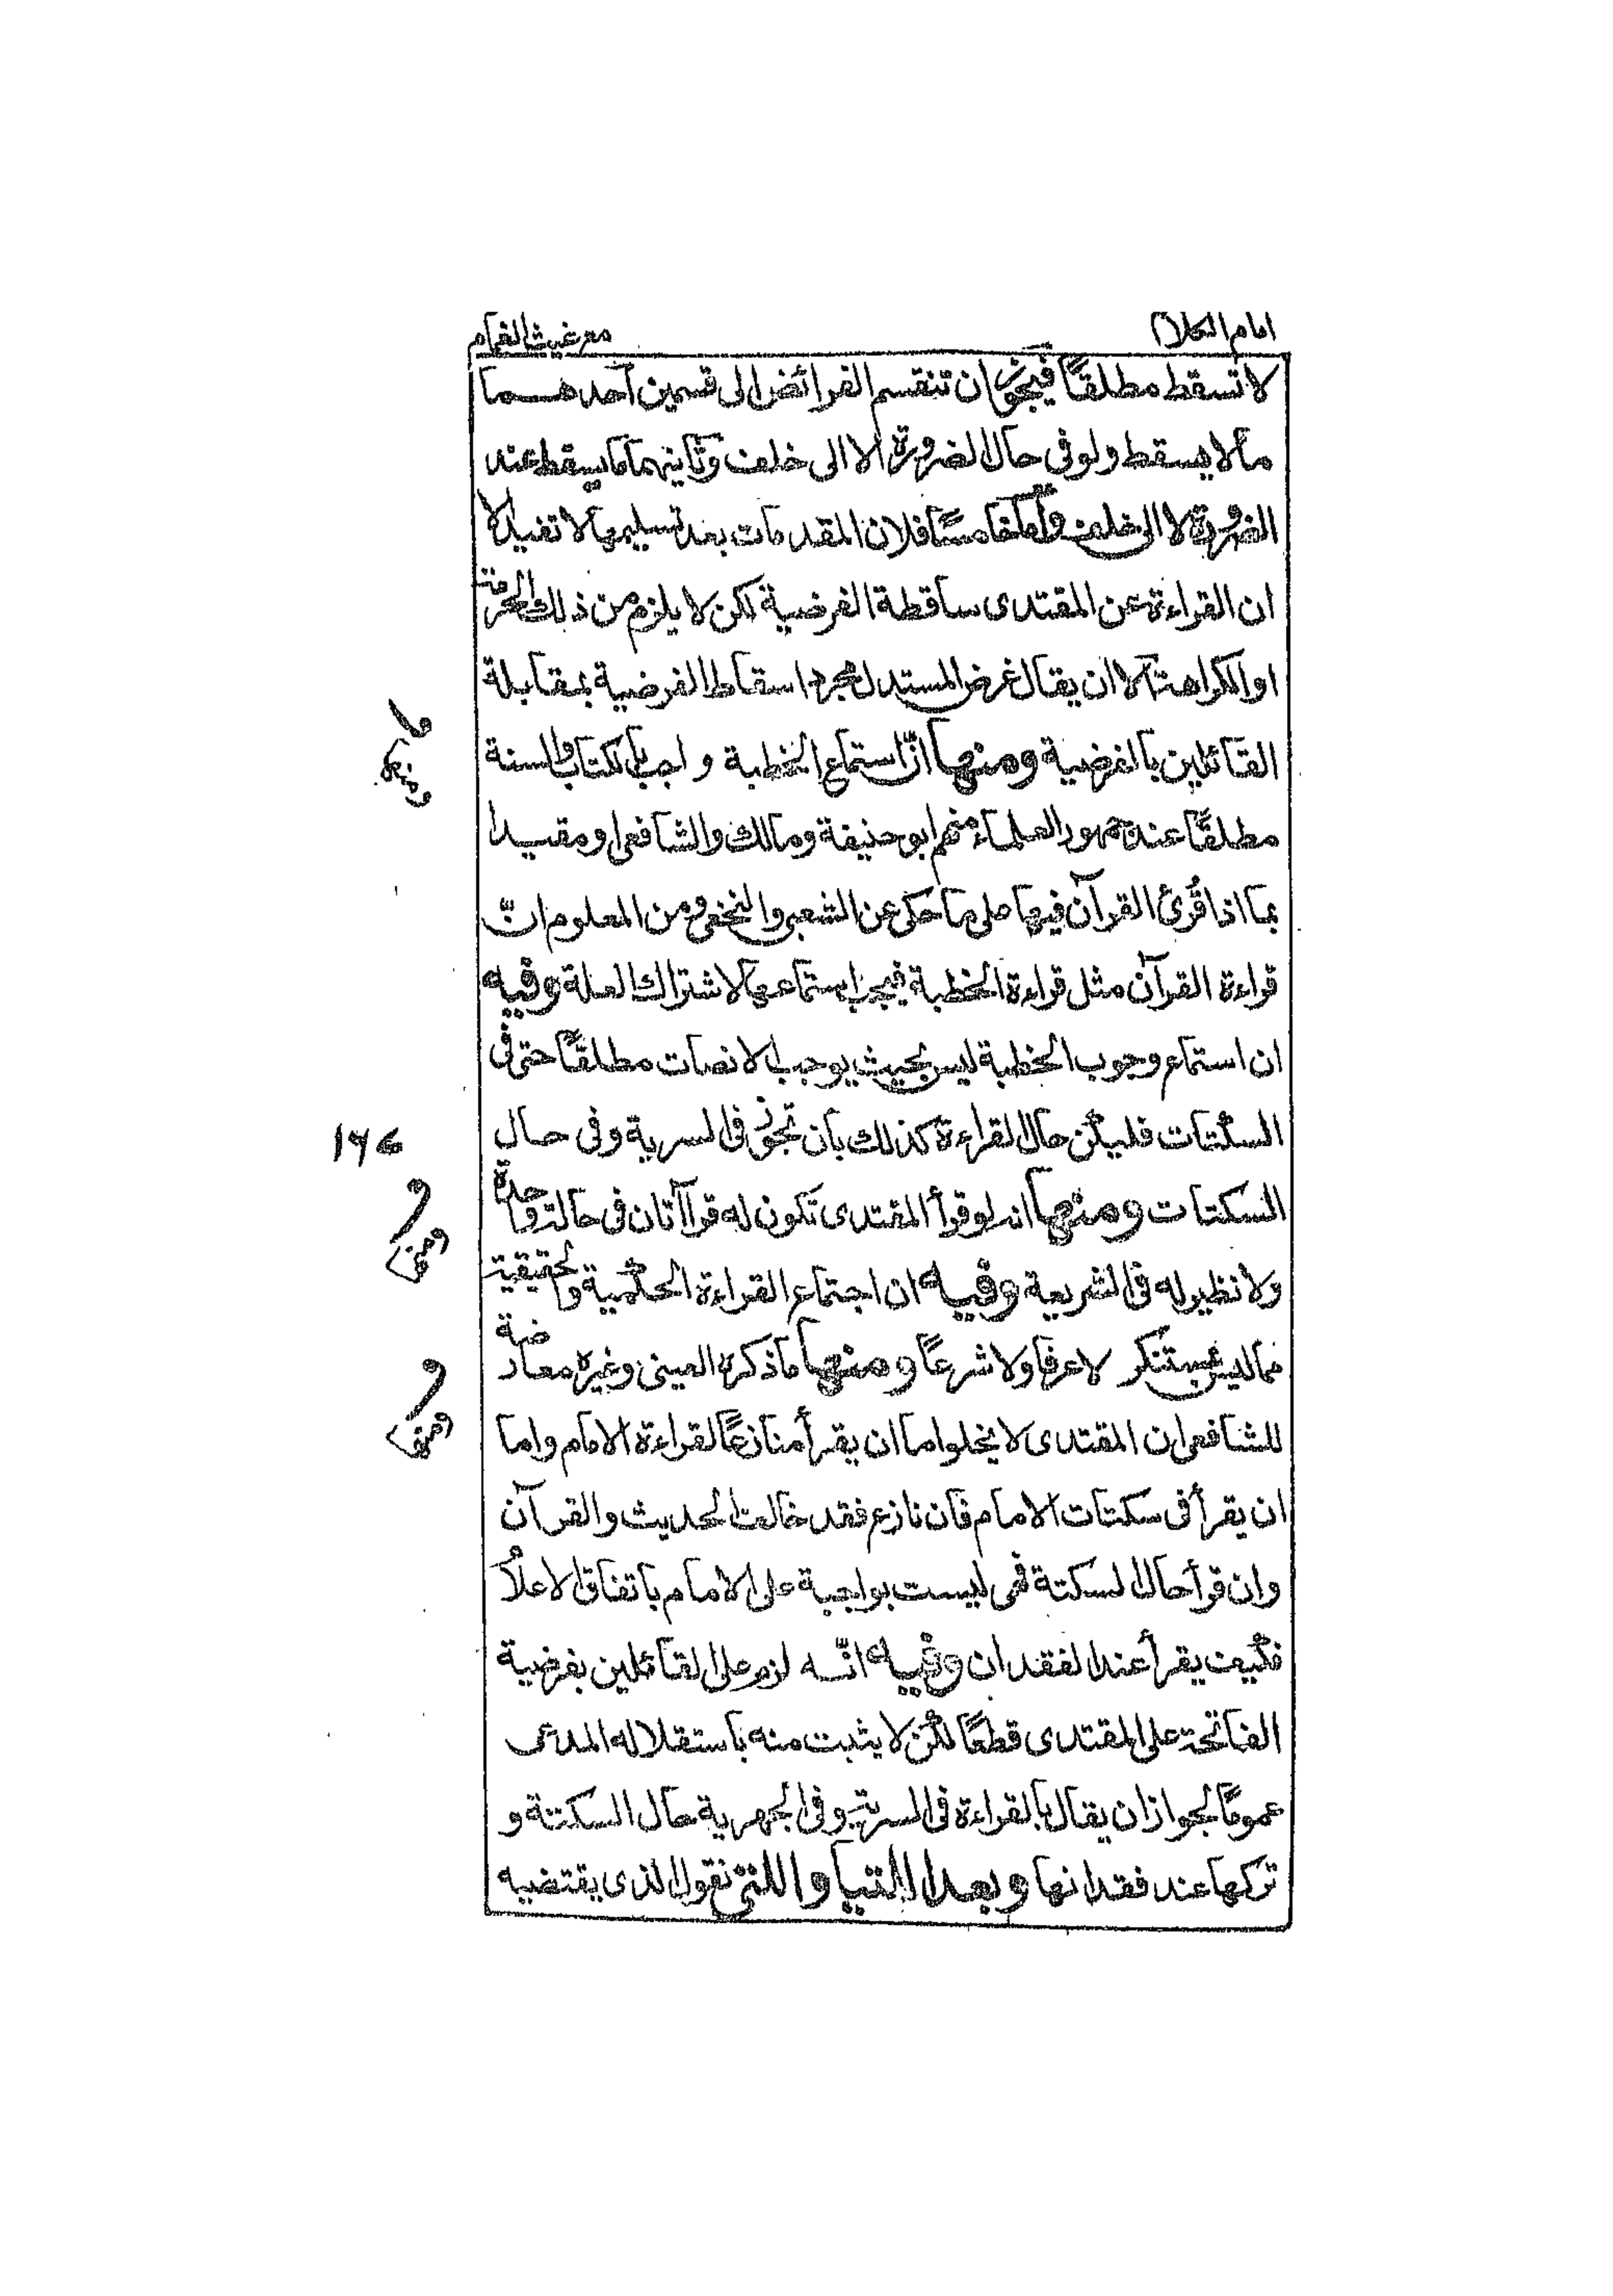 امام الكلام
مع غيث الغمام
لا تسقط مطلقًا فيجوز ان تنقسم الفرائض الى قسمين احدهما
ما لا يسقط ولو فى حال الضرورة الا الى خلف وثانيهما ما يسقط عند
الضرورة لا الى خلف واما خامسًا فلان المقدمات بعد تسليمها لا تفيد الا
ان القراءة عن المقتدى ساقطة الفرضية لكن لا يلزم من ذلك الحرمة
او الكراهة الا ان يقال غرض المستدل مجرد اسقاط الفرضية بمقابلة
القائلين بالفرضية ومنها انّ استماع الخطبة واجب بالكتاب والسنة
ومنها
مطلقًا عند جمهور العلماء منهم ابو حنيفة ومالك والشافعى ومقيدا
بما اذا قُرئ القرآن فيها على ما حكى عن الشعبى والنخعى ومن المعلوم انّ
قراءة القرآن مثل قراءة الخطبة فيجب استماعها لاشتراك العلة وفيه
ان استماع وجوب الخطبة ليس بحيث يوجب الانصات مطلقًا حتى فى
السكتات فليكن حال القراءة كذلك بان تجوز فى السرية وفى حال
السكتات ومنها انه لو قرأ المقتدى تكون له قراأتان فى حالة واحدة
ومنها
ولا نظير له فى الشريعة وفيه ان اجتماع القراءة الحكمية والحقيقية
مما ليس بمستنكر لا عرفا ولا شرعًا ومنها ما ذكره العينى وغيره معارضة
ومنها
للشافعى ان المقتدى لا يخلوا ما ان يقرأ منازعًا لقراءة الامام واما
ان يقرأ فى سكتات الامام فان نازع فقد خالف الحديث والقرآن
وان قرأ حال السكتة فهى ليست بواجبة على الامام باتفاق الاعلام
فكيف يقرأ عند الفقدان وفيه انّه لزم على القائلين بفرضية
الفاتحة على المقتدى قطعًا لكن لا يثبت منه باستقلاله المدعى
عمومًا لجواز ان يقال بالقراءة فى السرية وفى الجهرية حال السكتة و
تركها عند فقدانها وبعد اللتيا واللتى نقول الذى يقتضيه